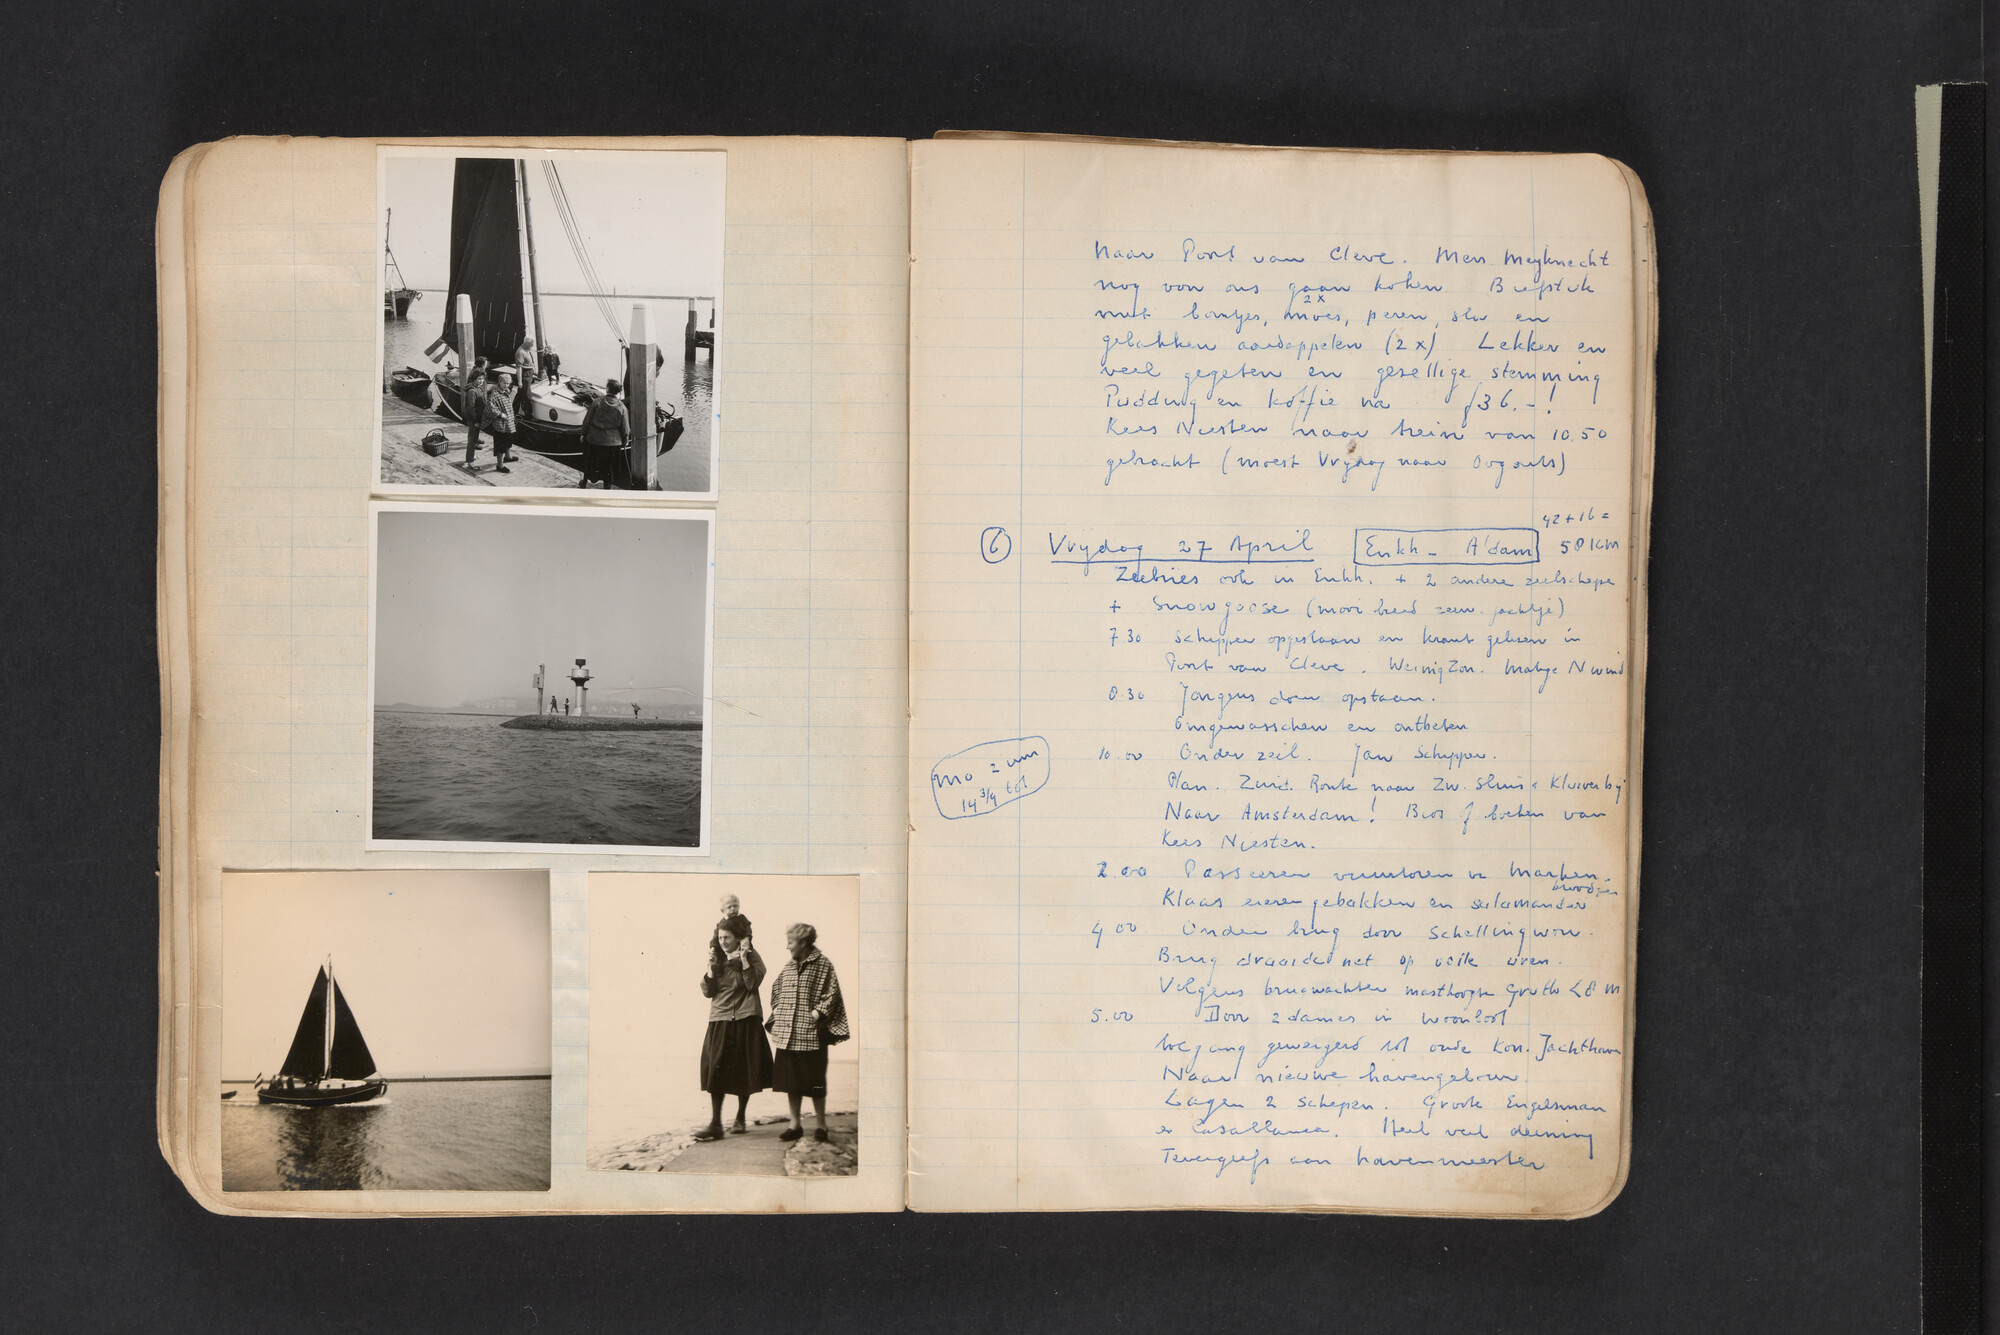 Naar Port van Cleve. Mevr. Meyknecht
nog von ons gaan koken Biefstuk
met boontjes, moes, peren, sla en
2x
gebakken aardappelen (2x) Lekker en
veel gegeten en gezellige stemming
Pudding en koffie na f36.-!
Kees Niesten naar trein van 10.50
gebracht (moest Vrydag naar
42+16=
6 Vrydag 27 April Enkh - A'dam 58 KM
Zeebries ook in Enkh. + 2 andere zeilschepen
+ Snowgoose (mooi breed zeew. jachtje)
7.30 Schipper opgestaan en krant gelezen in
Port van Cleve. Weinig Zon. Matige N wind
8.30 Jongens doen opstaan.
Omgewasschen en ontbeten
10.00 Onder zeil. Jan Schipper.
NNO 2 um
14 3/4 tot
Plan. Zuid. Route naar Zw. Sluis Kluiver bij
Naar Amsterdam! Bios of boeken van
Kees Niesten.
2.00 Passeeren vuurtoren v Marken.
broodjes
Klaas eieren gebakken en salamander
4 00 Onder brug door Schellingwou.
Brug draaide net op volle uren.
Volgens brugwachter masthoogte Grutto <8 M
5.00 Door 2 dames in woonboot
toegang geweigerd tot oude Kon. Jachthaven
Naar nieuwe havengebouw.
Lagen 2 schepen. Groote Engelsman
en Casablanca. Heel veel deining
Tevergeefs aan havenmeester